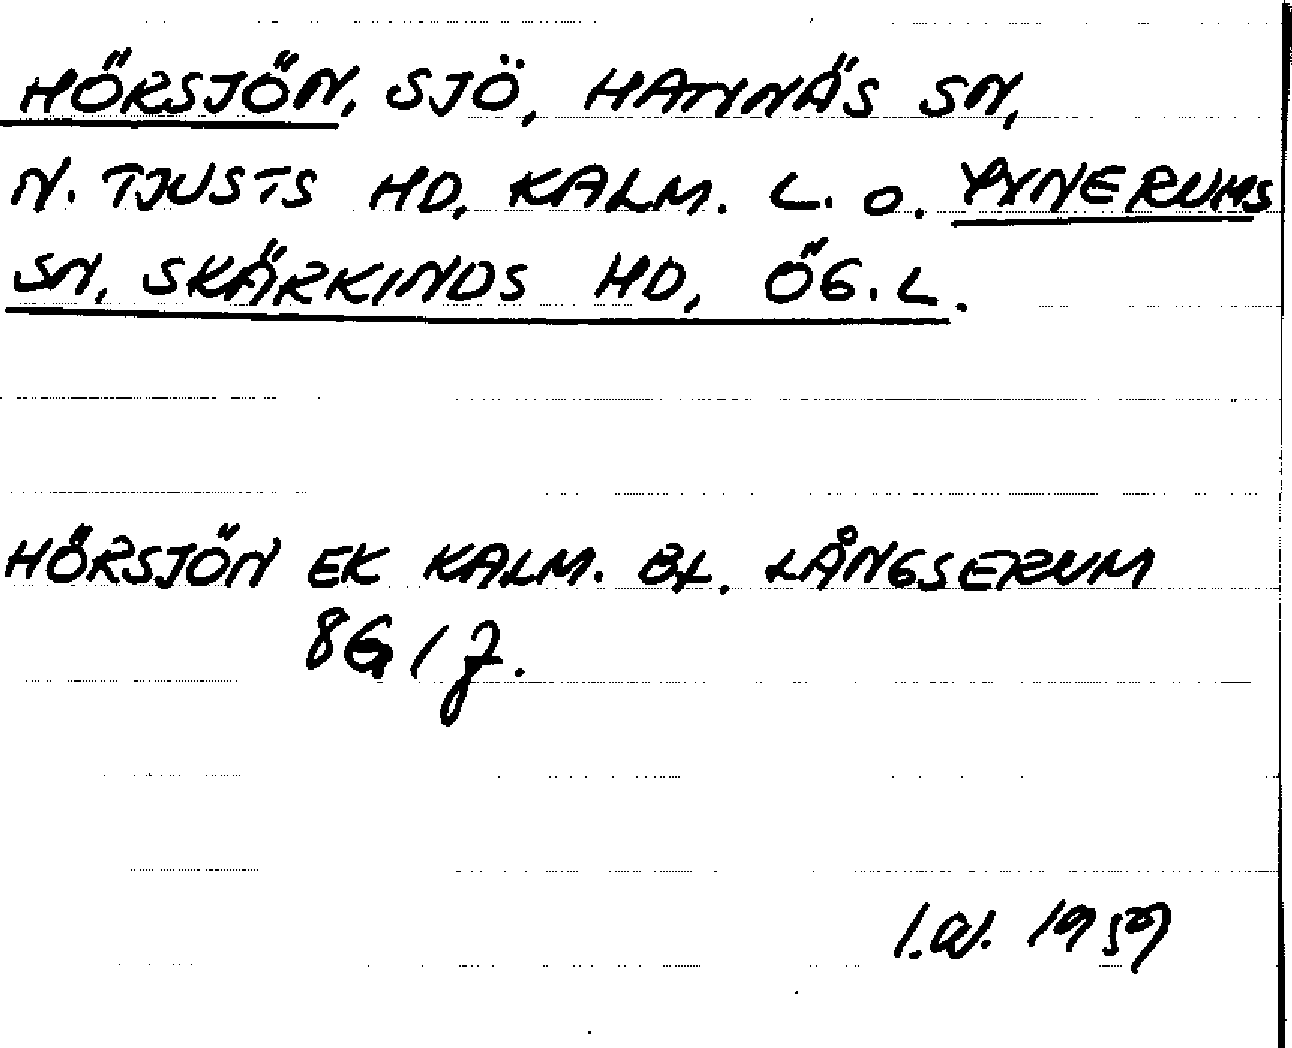 HÖRSJÖN, SJÖ, HANNÄS SN,
N. TJUSTS HD, KALM. L. O. YXNERUMS
SN, SKÄRKINDS HD, ÖG. L.
HÖRSJÖN EK KALM. BL. LÅNGSERUM
8G / J.
I.W. 1959